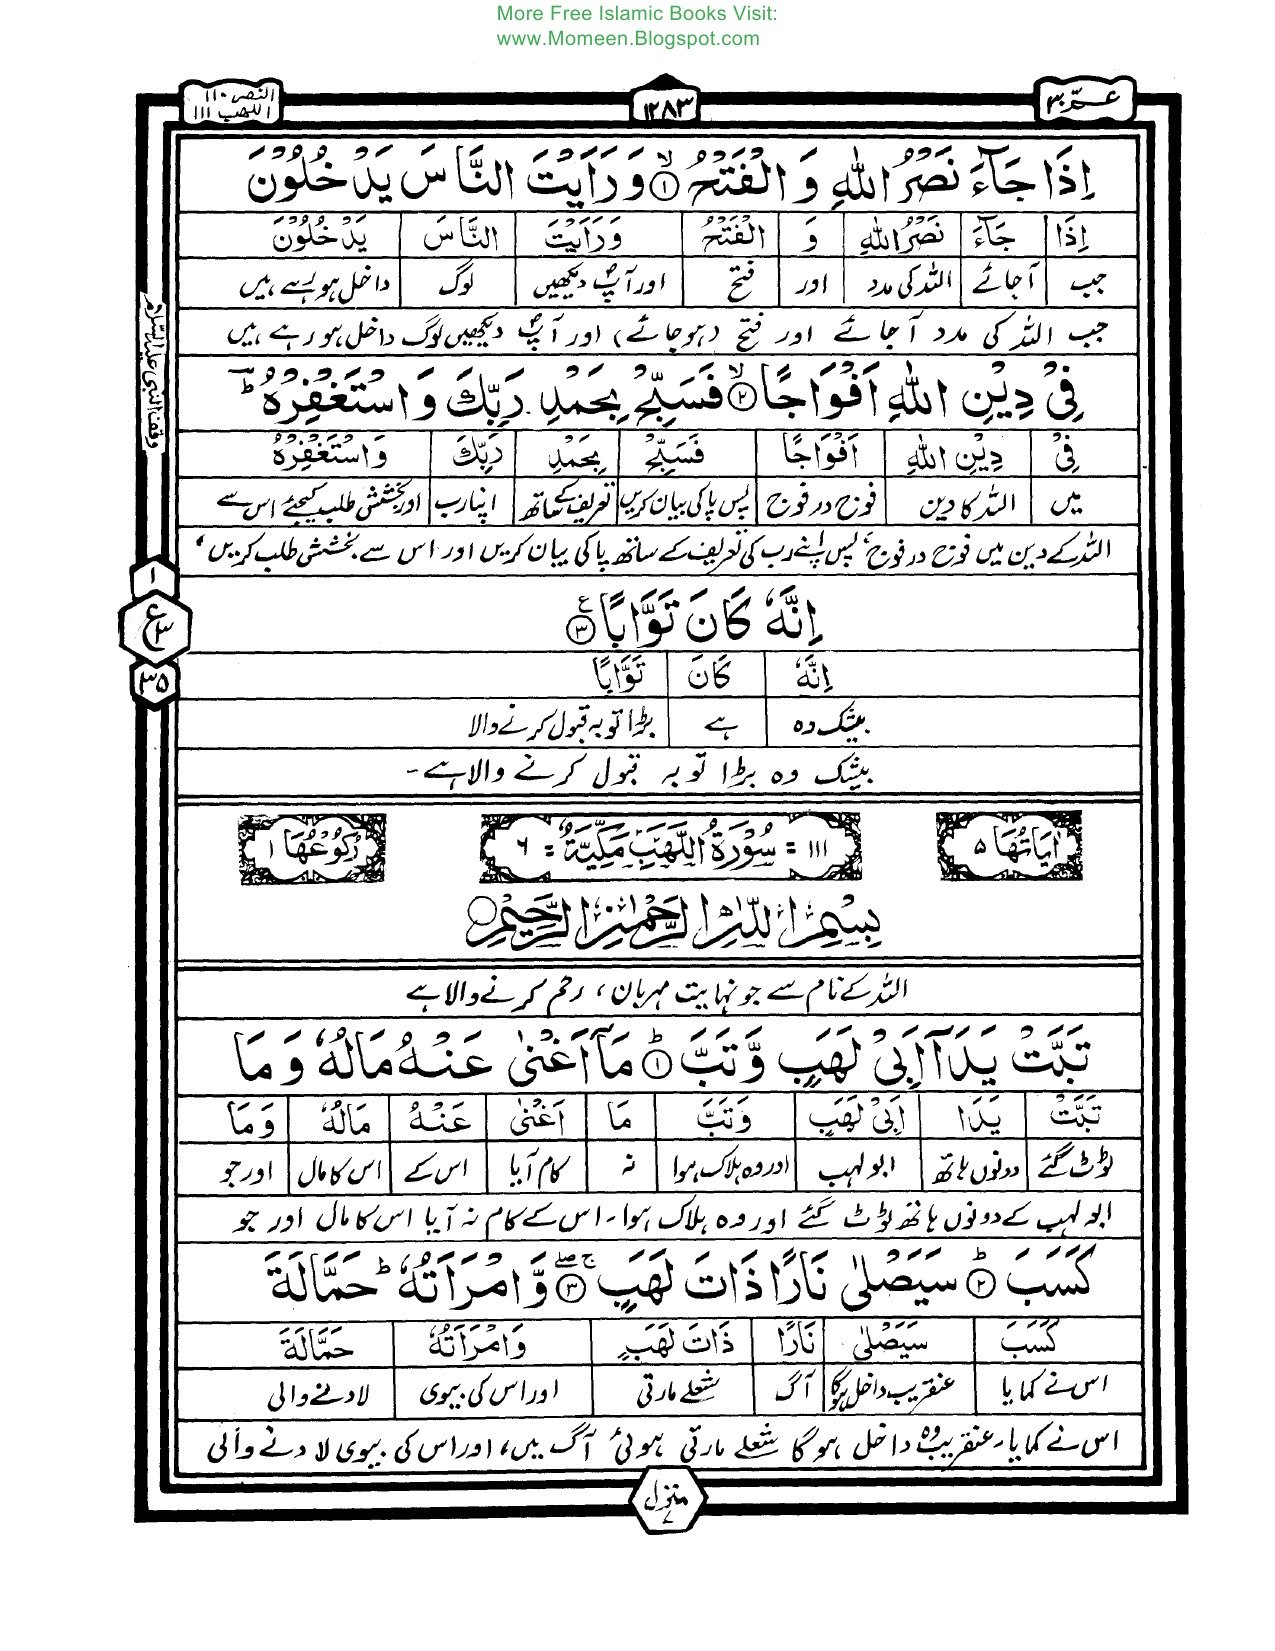 More Free Islamic Books Visit:
www.Momeen.Blogspot.com
عـمّ ۳۰
۱۲۸۳
النصر ۱۱۰
اللھب ۱۱۱
اِذَا جَآءَ نَصْرُ اللّٰهِ وَ الْفَتْحُ ۙ۝۱ وَ رَاَیْتَ النَّاسَ یَدْخُلُوْنَ
اِذَا جَآءَ نَصْرُ اللّٰهِ وَ الْفَتْحُ وَ رَاَیْتَ النَّاسَ یَدْخُلُوْنَ
جب آجائے اللہ کی مدد اور فتح اور آپؐ دیکھیں لوگ داخل ہورہے ہیں
جب اللہ کی مدد آجائے اور فتح (ہوجائے) اور آپؐ دیکھیں لوگ داخل ہورہے ہیں
فِیْ دِیْنِ اللّٰهِ اَفْوَاجًا ۙ۝۲ فَسَبِّحْ بِحَمْدِ رَبِّكَ وَ اسْتَغْفِرْهُ ؔؕ
فِیْ دِیْنِ اللّٰهِ اَفْوَاجًا فَسَبِّحْ بِحَمْدِ رَبِّكَ وَ اسْتَغْفِرْهُ
میں اللہ کا دین فوج در فوج پس پاکی بیان کریں تعریف کے ساتھ اپنا رب اور بخشش طلب کیجئے اس سے
اللہ کے دین میں فوج در فوج، پس اپنے رب کی تعریف کے ساتھ پاکی بیان کریں اور اس سے بخشش طلب کریں،
اِنَّهٗ كَانَ تَوَّابًا ۝۳ ع
اِنَّهٗ كَانَ تَوَّابًا
بیشک وہ ہے بڑا توبہ قبول کرنے والا
بیشک وہ بڑا توبہ قبول کرنے والا ہے۔
وقف النبی علیہ السّلام
۱
ع ۳
۳۵
اٰیَاتُهَا ۵
۱۱۱ = سُوْرَةُ اللَّهَبِ مَكِّیَّةٌ = ۶
رُكُوْعُهَا ۱
بِسْمِ اللّٰهِ الرَّحْمٰنِ الرَّحِیْمِ
اللہ کے نام سے جو نہایت مہربان، رحم کرنے والا ہے
تَبَّتْ یَدَاۤ اَبِیْ لَهَبٍ وَّ تَبَّ ؕ۝۱ مَاۤ اَغْنٰی عَنْهُ مَالُهٗ وَ مَا
تَبَّتْ یَدَا اَبِیْ لَهَبٍ وَ تَبَّ مَا اَغْنٰی عَنْهُ مَالُهٗ وَ مَا
ٹوٹ گئے دونوں ہاتھ ابو لہب اور وہ ہلاک ہوا نہ کام آیا اس کے اس کا مال اور جو
ابو لہب کے دونوں ہاتھ ٹوٹ گئے اور وہ ہلاک ہوا۔ اس کے کام نہ آیا اس کا مال اور جو
كَسَبَ ؕ۝۲ سَیَصْلٰی نَارًا ذَاتَ لَهَبٍ ۚۖ۝۳ وَّ امْرَاَتُهٗ ؕ حَمَّالَةَ
كَسَبَ سَیَصْلٰی نَارًا ذَاتَ لَهَبٍ وَ امْرَاَتُهٗ حَمَّالَةَ
اس نے کمایا عنقریب داخل ہوگا آگ شعلے مارتی اور اس کی بیوی لادنے والی
اس نے کمایا۔ عنقریب وہ داخل ہوگا شعلے مارتی ہوئی آگ میں، اور اس کی بیوی لادنے والی
منزل ۷